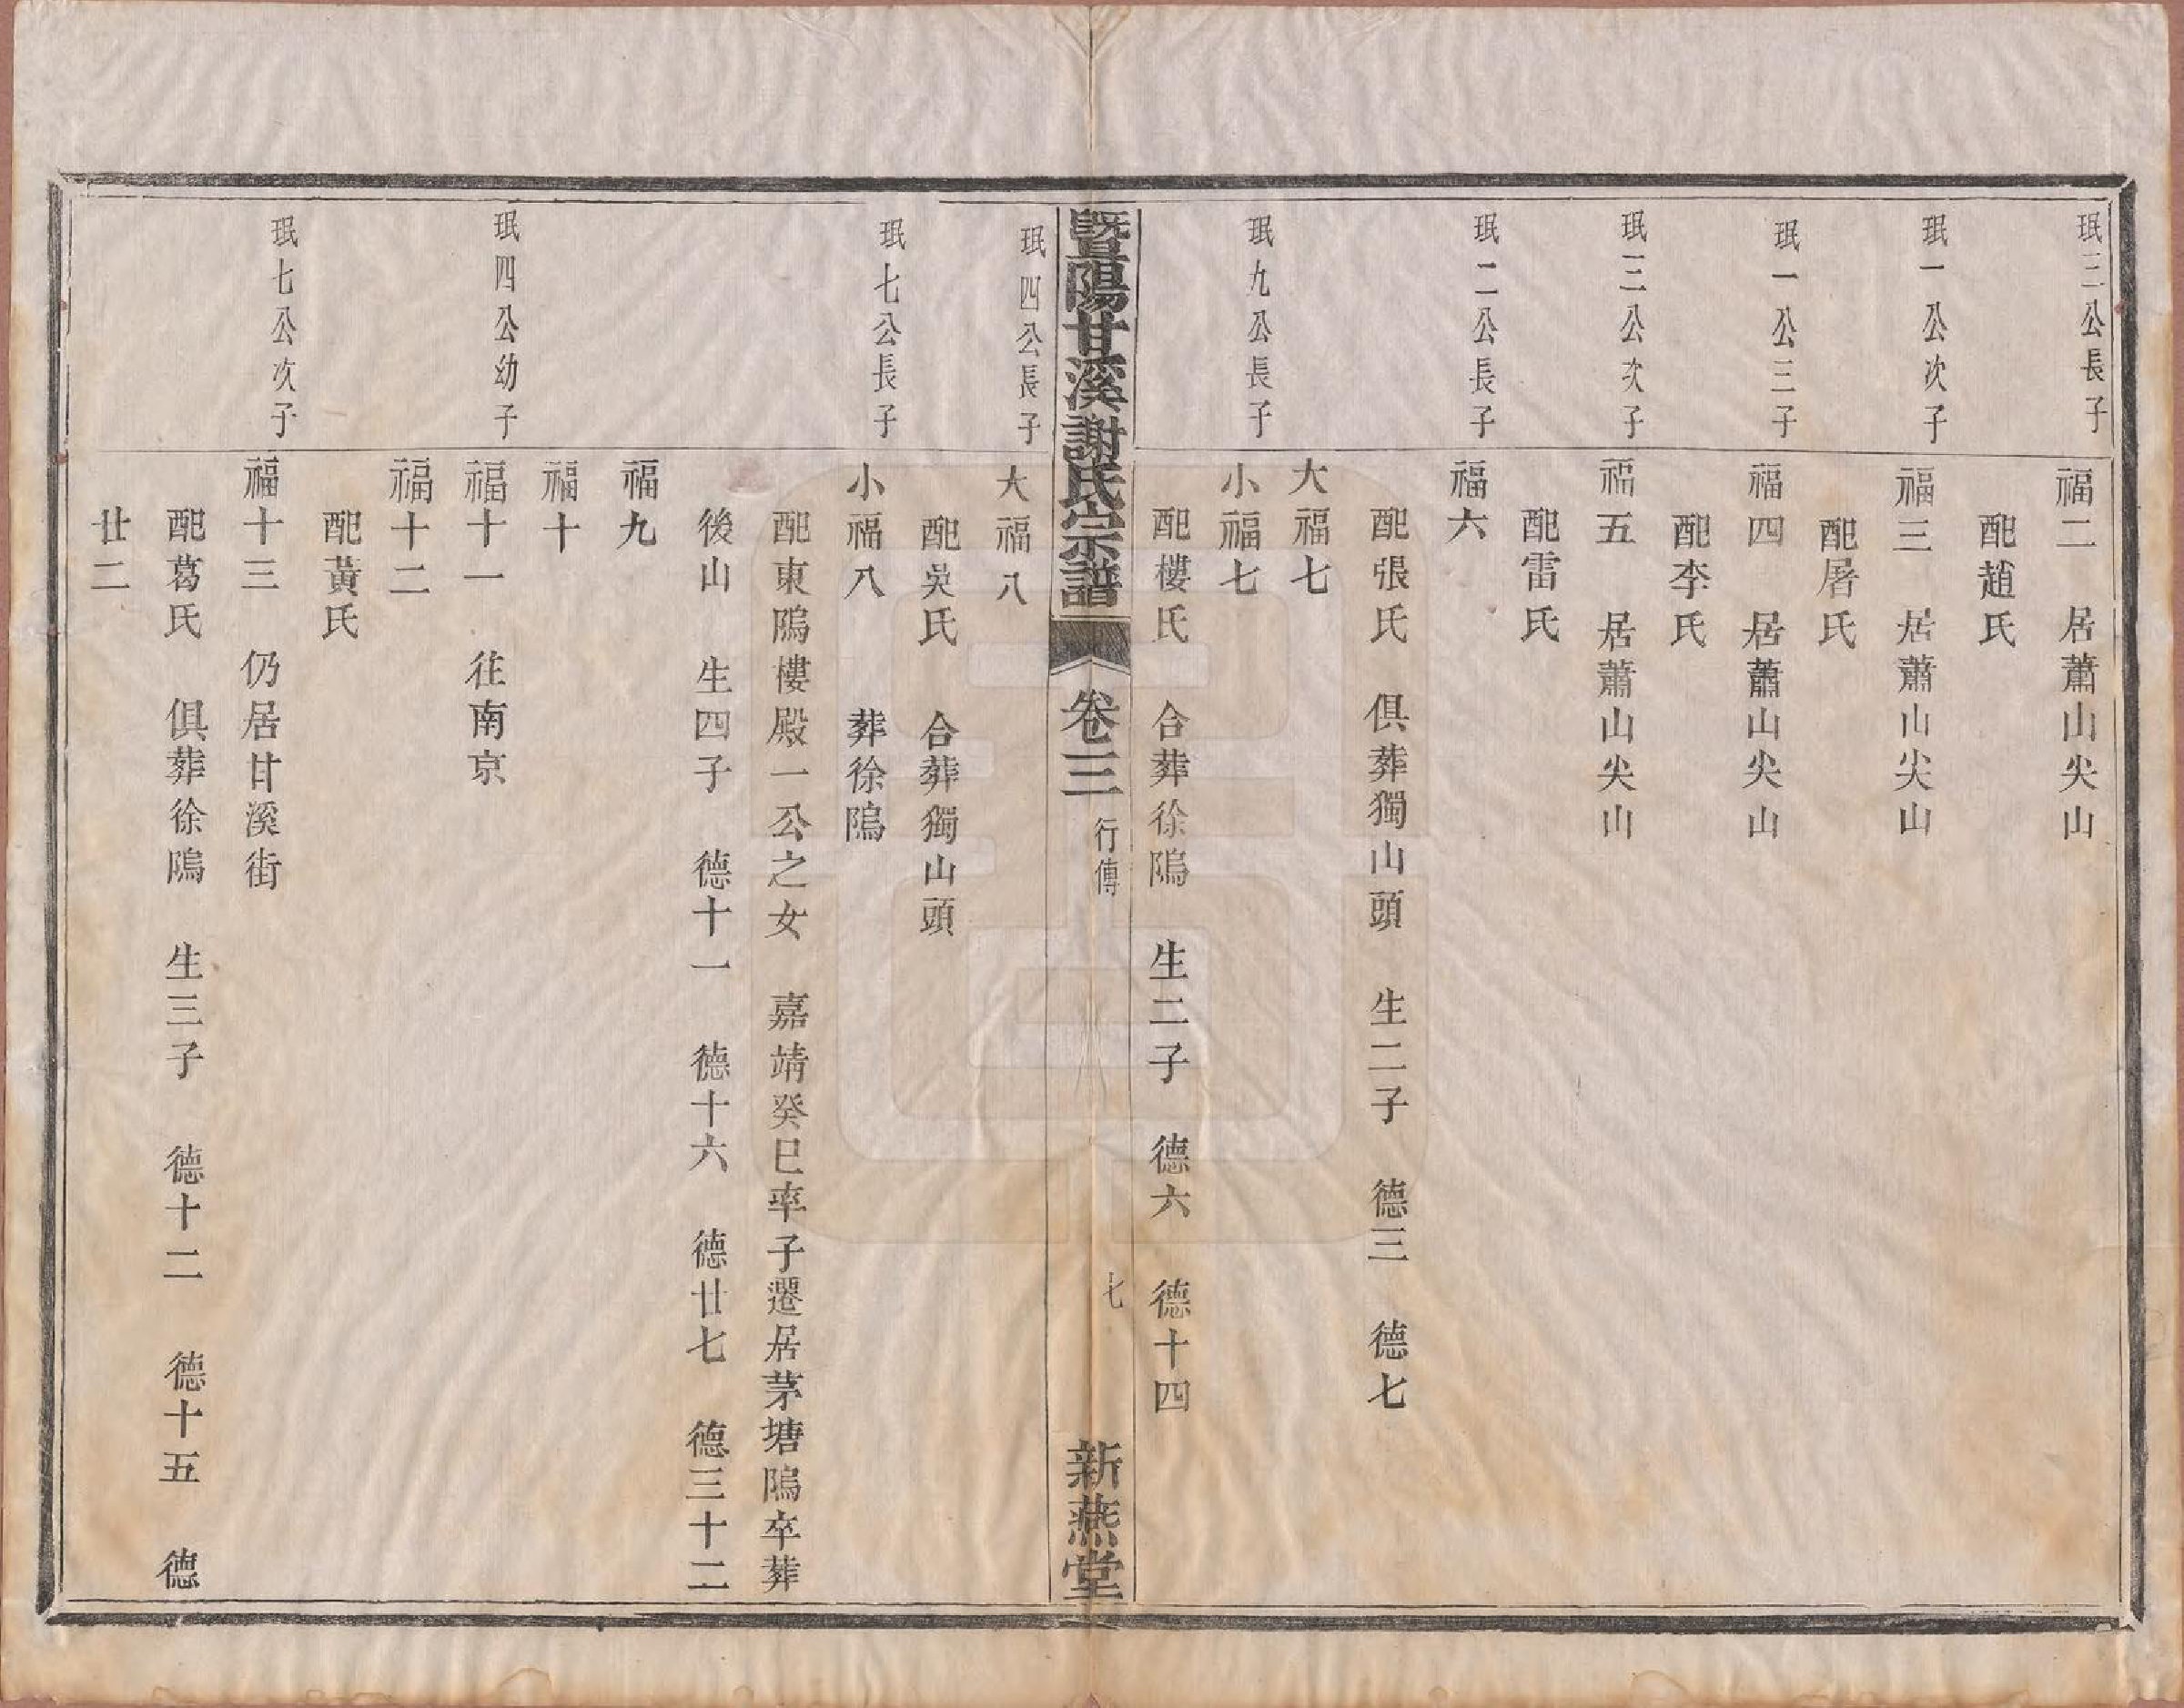 珉三公長子
福二　居蕭山尖山
配趙氏
珉一公次子
福三　居蕭山尖山
配屠氏
珉一公三子
福四　居蕭山尖山
配李氏
珉三公次子
福五　居蕭山尖山
配雷氏
珉二公長子
福六
配張氏　俱葬獨山頭　生二子　德三　德七
大福七
珉九公長子
小福七
配樓氏　合葬徐隖　生二子　德六　德十四
暨陽甘溪謝氏宗譜　卷三　行傳　七　新燕堂
珉四公長子
大福八
配吳氏　合葬獨山頭
珉七公長子
小福八　葬徐隖
配東隖樓殿一公之女　嘉靖癸巳率子遷居茅塘隖卒葬
後山　生四子　德十一　德十六　德廿七　德三十二
福九
福十
珉四公幼子
福十一　往南京
福十二
配黃氏
珉七公次子
福十三　仍居甘溪街
配葛氏　俱葬徐隖　生三子　德十二　德十五　德
廿二